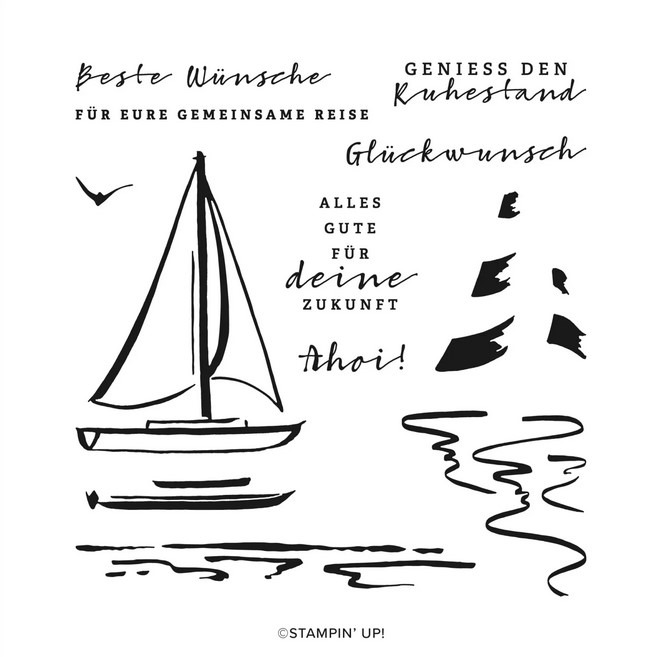 Beste Wünsche
FÜR EURE GEMEINSAME REISE
GENIESS DEN
Ruhestand
Glückwunsch
ALLES
GUTE
FÜR
deine
ZUKUNFT
Ahoi!
©STAMPIN' UP!